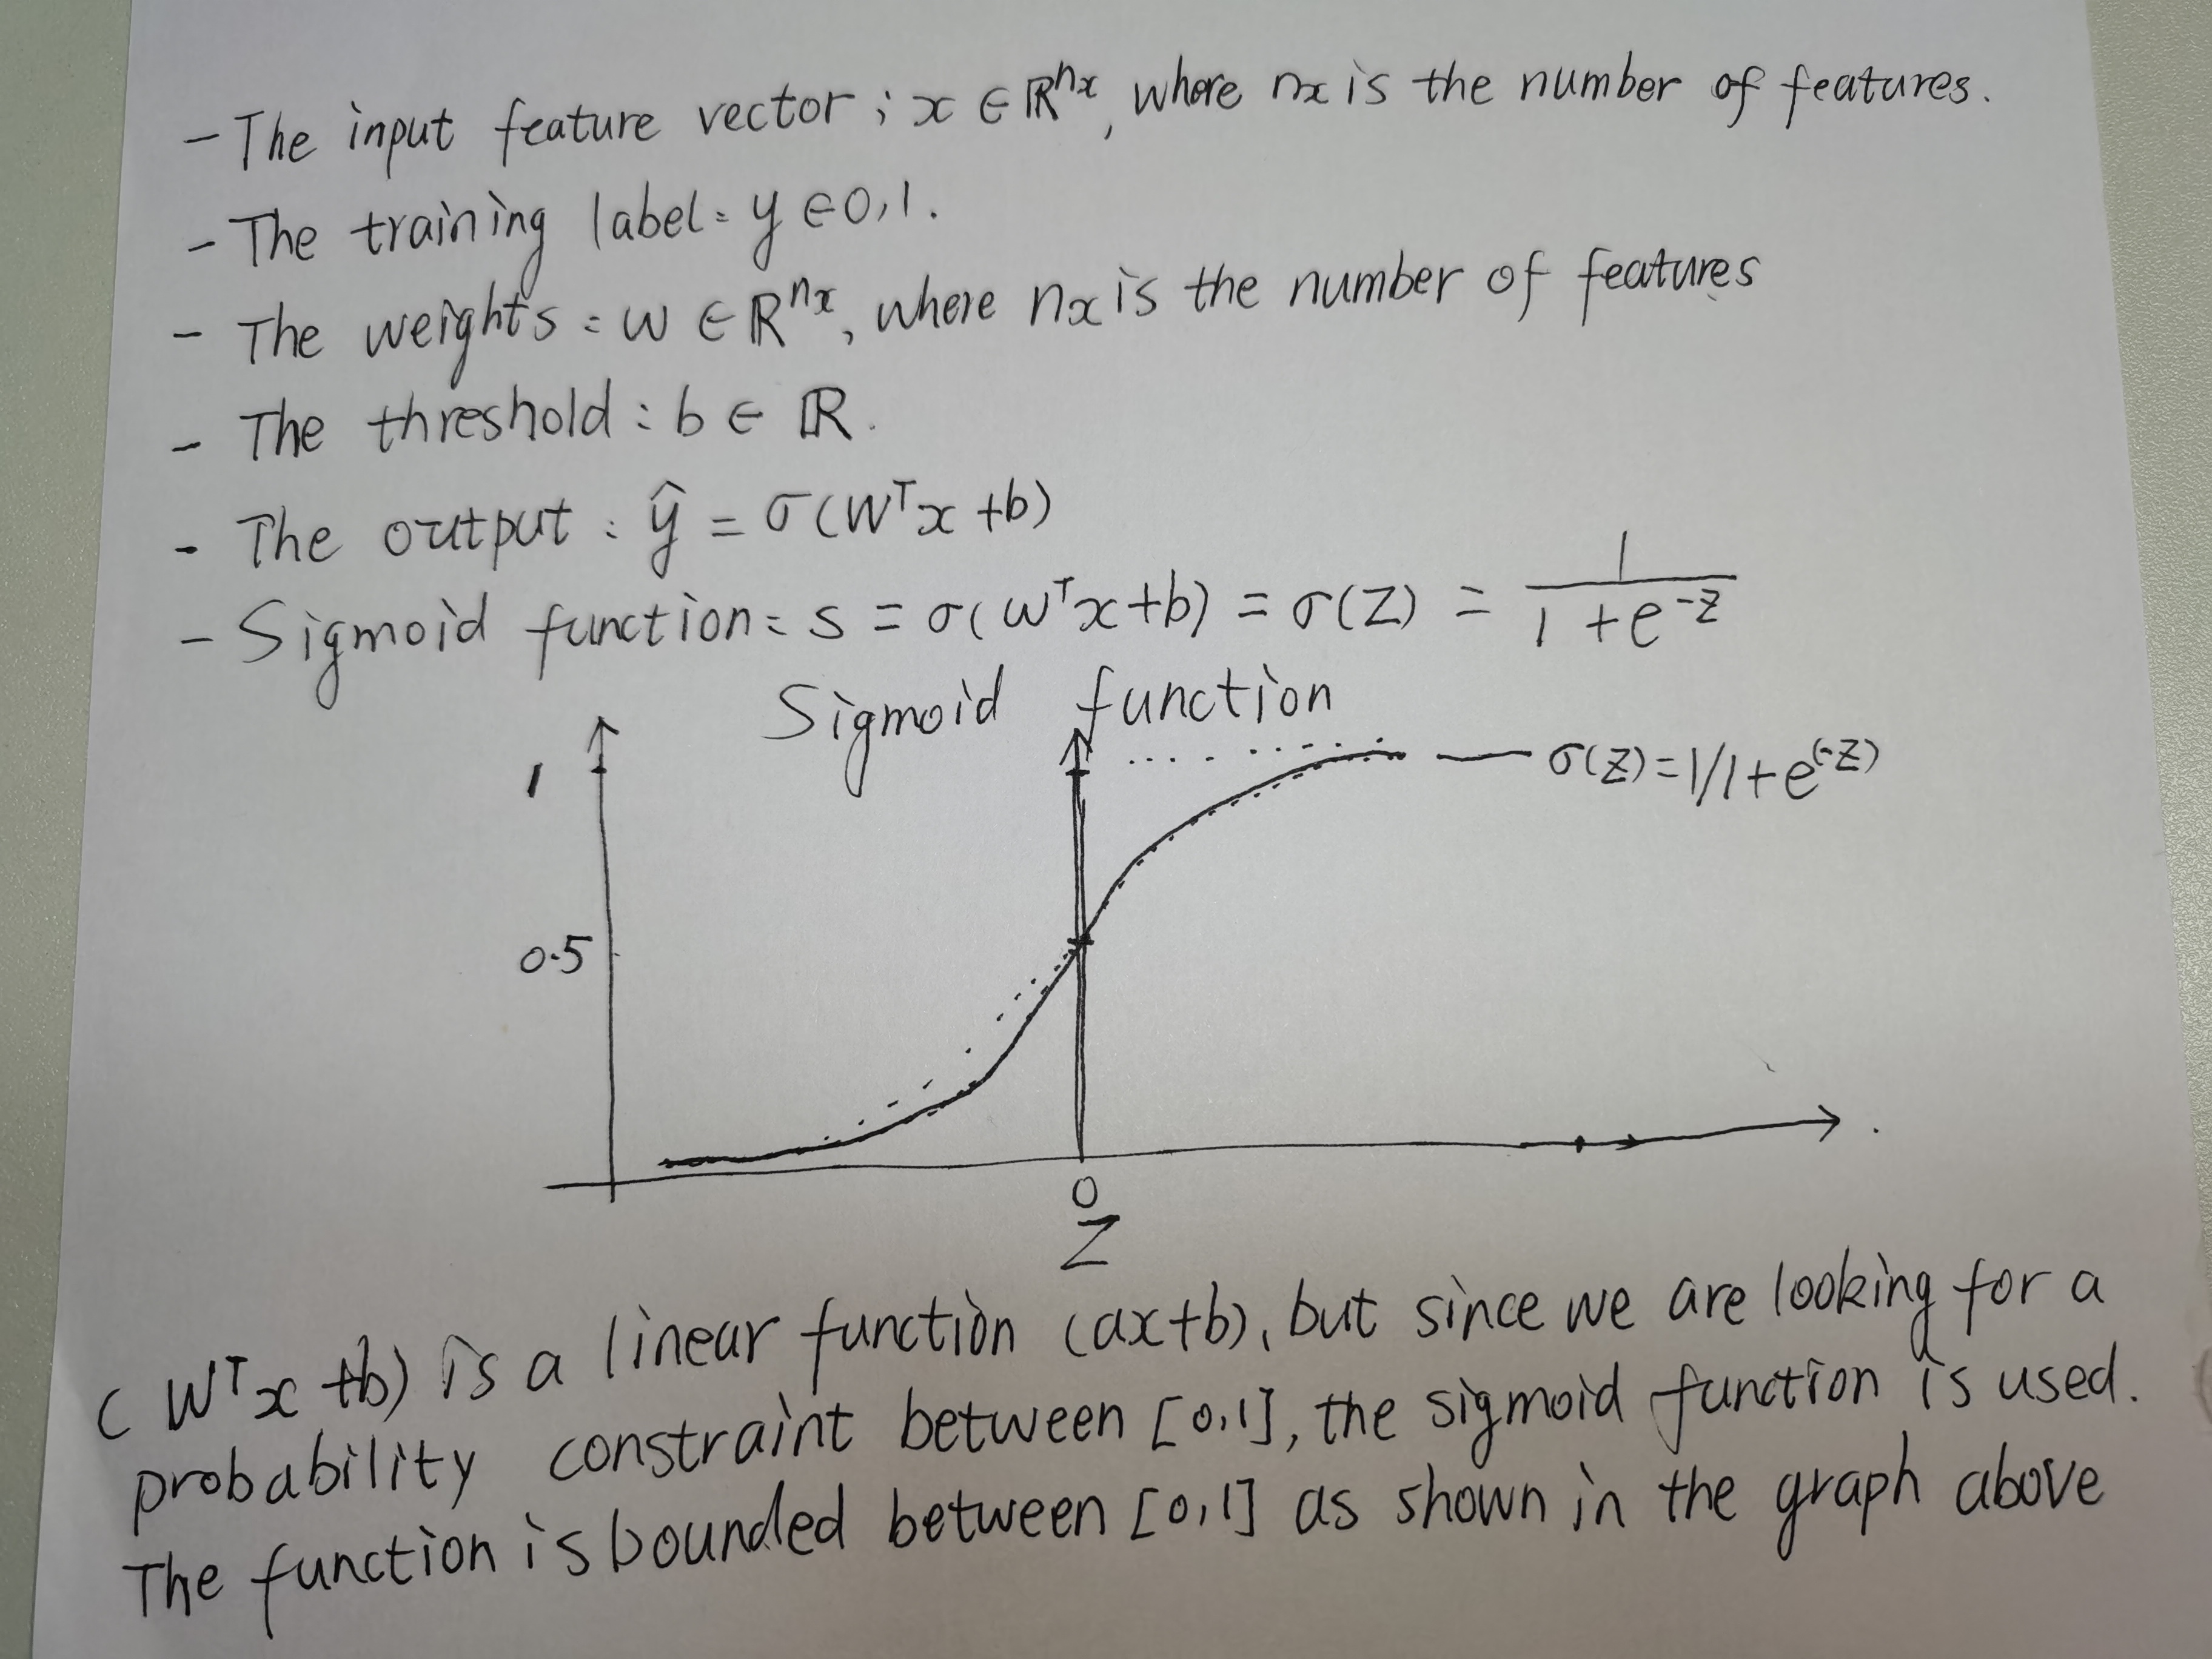 - The input feature vector ; x ∈ ℝ^nx, where nx is the number of features.
- The training label: y ∈ 0,1.
- The weights : w ∈ ℝ^nx, where nx is the number of features
- The threshold : b ∈ ℝ.
- The output : ŷ = σ(W^T x + b)
- Sigmoid function: s = σ(w^T x + b) = σ(Z) = 1/(1 + e^-z)
Sigmoid function
1
σ(Z) = 1/1 + e^(-Z)
0.5
0
Z
(W^T x + b) is a linear function (ax+b), but since we are looking for a
probability constraint between [0,1], the sigmoid function is used.
The function is bounded between [0,1] as shown in the graph above